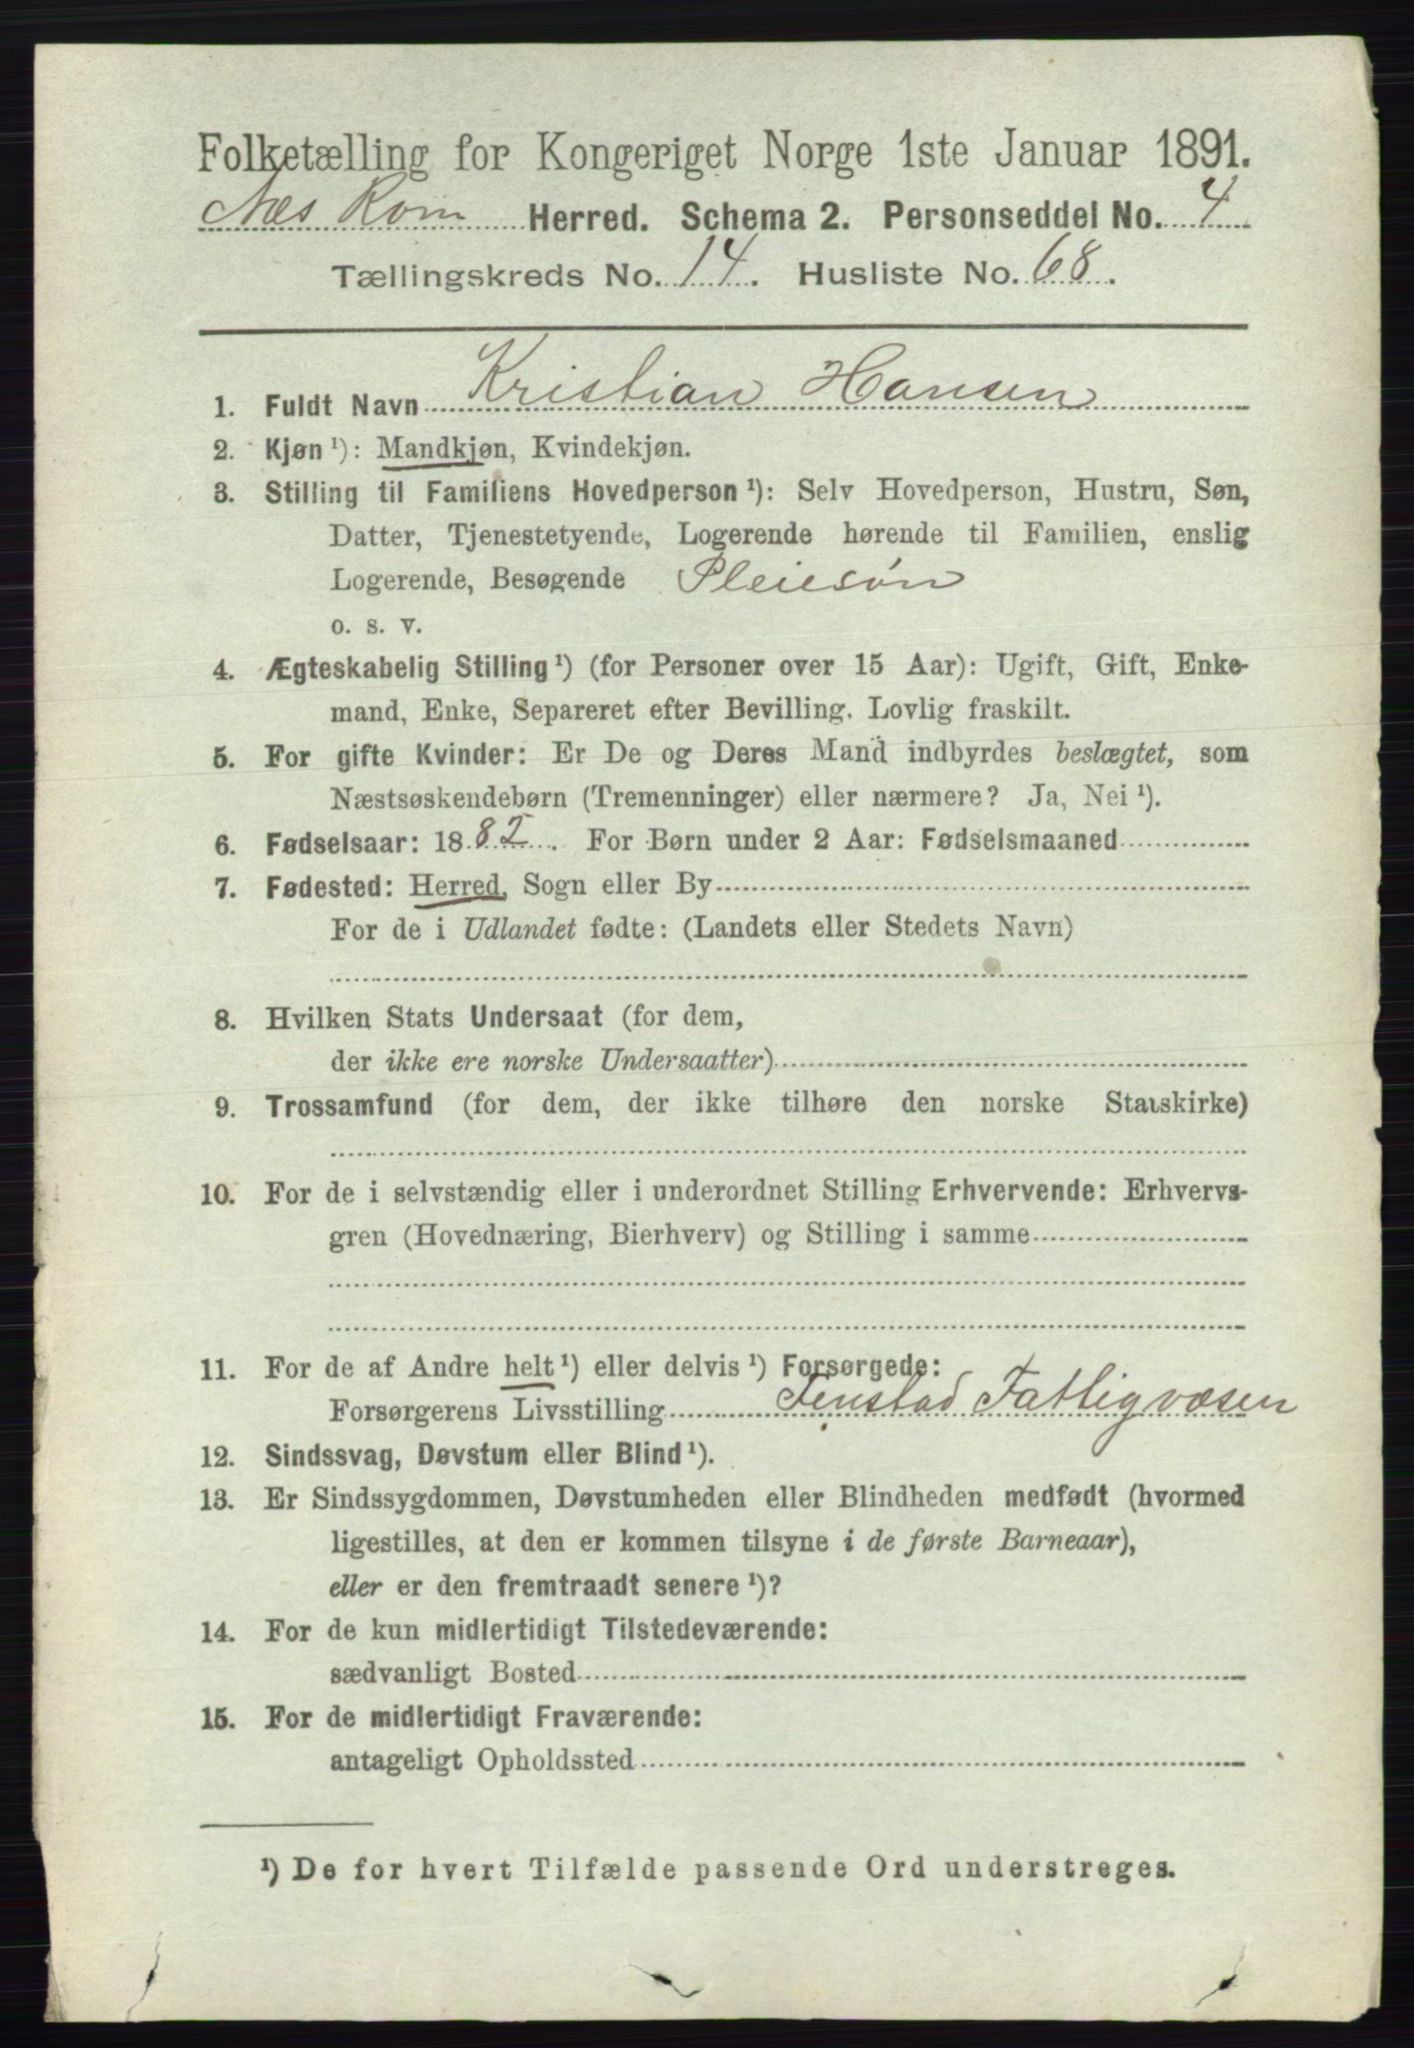 Folketælling for Kongeriget Norge 1ste Januar 1891.
Næs Rom Herred. Schema 2. Personseddel No. 4
Tællingskreds No. 14. Husliste No. 68.
1. Fuldt Navn Kristian Hansen
2. Kjøn ¹): Mandkjøn, Kvindekjøn.
3. Stilling til Familiens Hovedperson ¹): Selv Hovedperson, Hustru, Søn,
Datter, Tjenestetyende, Logerende hørende til Familien, enslig
Logerende, Besøgende Pleiesøn
o. s. v.
4. Ægteskabelig Stilling ¹) (for Personer over 15 Aar): Ugift, Gift, Enke-
mand, Enke, Separeret efter Bevilling. Lovlig fraskilt.
5. For gifte Kvinder: Er De og Deres Mand indbyrdes beslægtet, som
Næstsøskendebørn (Tremenninger) eller nærmere? Ja, Nei ¹).
6. Fødselsaar: 1882. For Børn under 2 Aar: Fødselsmaaned
7. Fødested: Herred, Sogn eller By
For de i Udlandet fødte: (Landets eller Stedets Navn)
8. Hvilken Stats Undersaat (for dem,
der ikke ere norske Undersaatter)
9. Trossamfund (for dem, der ikke tilhøre den norske Statskirke)
10. For de i selvstændig eller i underordnet Stilling Erhvervende: Erhvervs-
gren (Hovednæring, Bierhverv) og Stilling i samme
11. For de af Andre helt ¹) eller delvis ¹) Forsørgede:
Forsørgerens Livsstilling Fenstad Fattigvæsen
12. Sindssvag, Døvstum eller Blind ¹).
13. Er Sindssygdommen, Døvstumheden eller Blindheden medfødt (hvormed
ligestilles, at den er kommen tilsyne i de første Barneaar),
eller er den fremtraadt senere ¹)?
14. For de kun midlertidigt Tilstedeværende:
sædvanligt Bosted
15. For de midlertidigt Fraværende:
antageligt Opholdssted
¹) De for hvert Tilfælde passende Ord understreges.